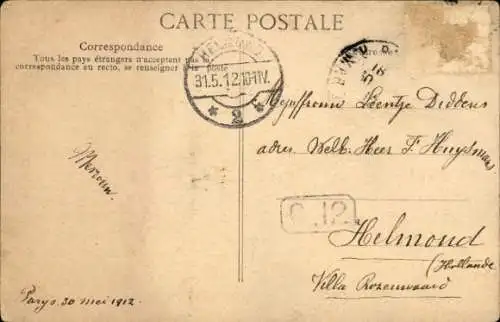 CARTE POSTALE
Correspondance
Tous les pays étrangers n'acceptent pas la
correspondance au recto, se renseigner à la Poste
HELMOND
31.5.12.10-11V.
2
Mejuffrouw Leentje Diddens
adres Welb. Heer F Huysmans
C.12.
Helmond
(Hollande
Villa Rozenwaard
Parys 30 mei 1912.